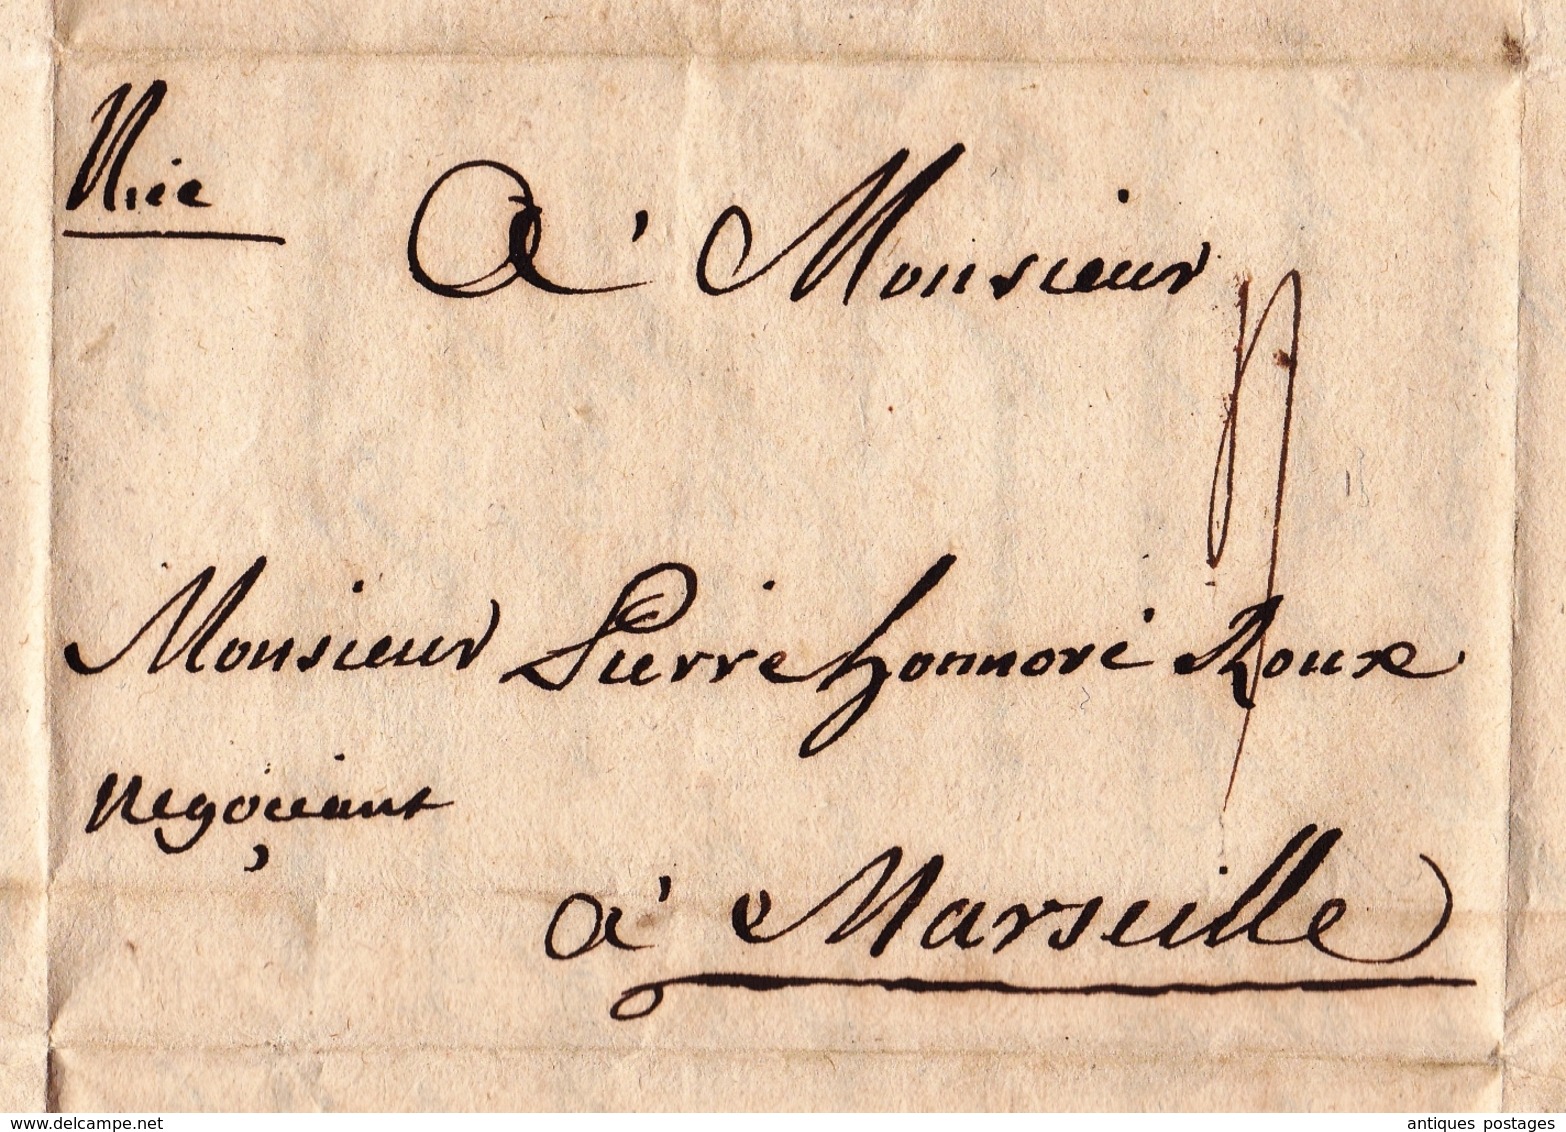 Nice
A Monsieur
Monsieur Pierre honnoré Roux
negoçiant
à Marseille
www.delcampe.net
antiques postages